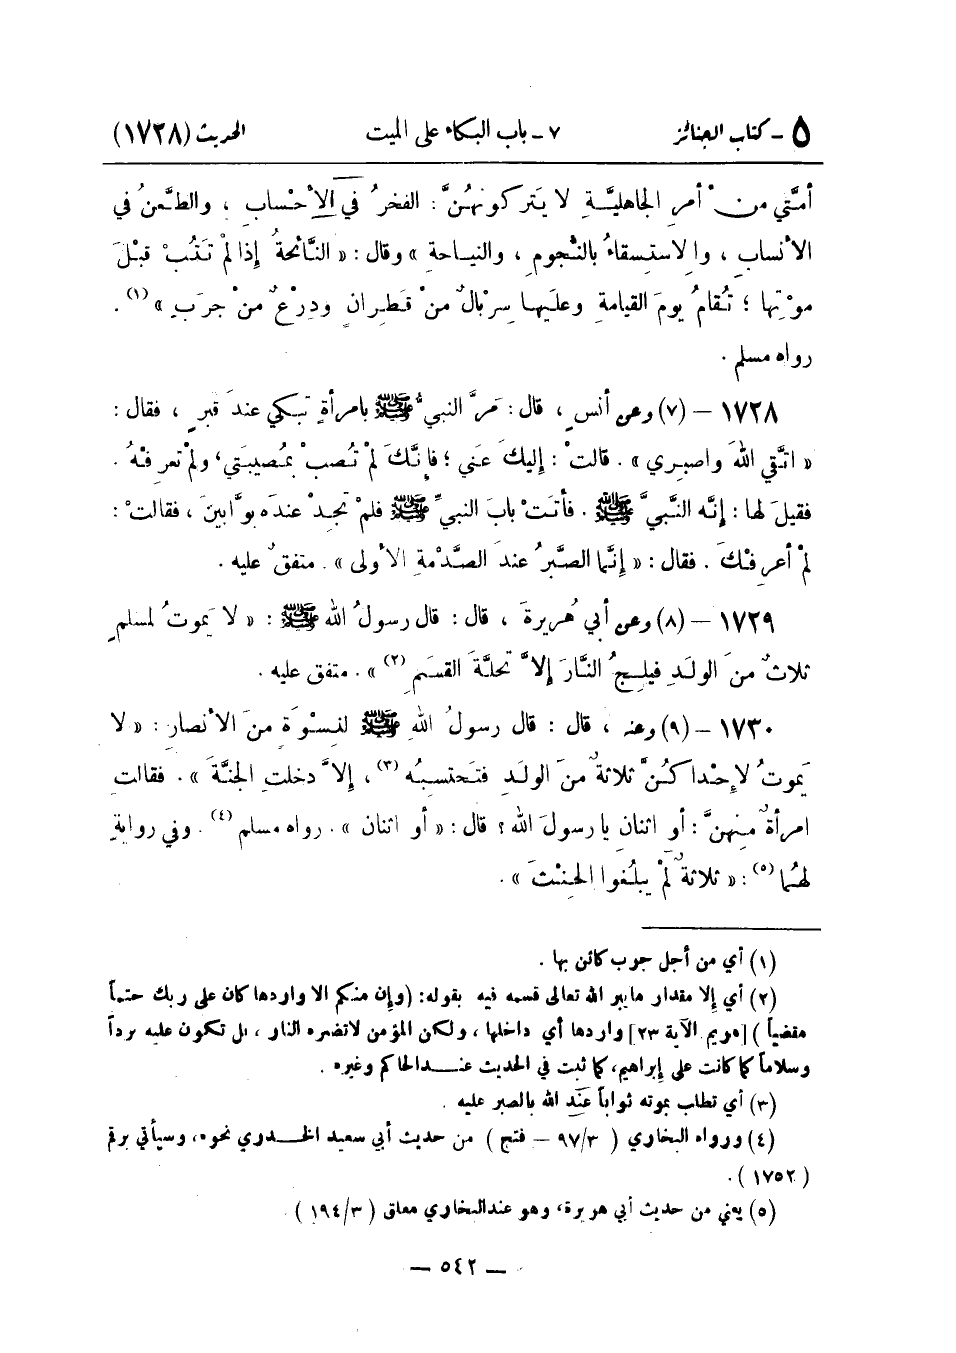 ٥ - كتاب الجنائز ٧ - باب البكاء على الميت الحديث (١٧٢٨)
أمَّتي من ْ أمرِ الجاهليَّةِ لا يَتركونهُنَّ : الفخرُ في الأحْسابِ ، والطَّعنُ في
الأنسابِ ، والاستسقاءُ بالنُّجومِ ، والنياحة » وقال : « النَّائحةُ إذا لمْ تَتُبْ قبْلَ
موْتِها ؛ تُقامُ يومَ القيامةِ وعليها سِرْبالٌ منْ قَطِرانٍ ودِرْعٌ منْ جرَبٍ » (١) .
رواه مسلم .
١٧٢٨ – (٧) وعن أنسٍ ، قال : مَرَّ النبيُّ ﷺ بامرأةٍ تبكي عندَ قبرٍ ، فقال :
« اتَّقي اللهَ واصبِري » . قالتْ : إليكَ عَنِّي ؛ فإنَّكَ لمْ تُصبْ بمُصيبَتي، ولمْ تعرِفْهُ .
فقيلَ لها : إنَّه النَّبيُّ ﷺ . فأتَتْ بابَ النبيِّ ﷺ فلمْ تجدْ عندَه بوَّابينَ ، فقالتْ :
لمْ أعرِفْكَ . فقال : « إنَّما الصَّبرُ عندَ الصَّدْمةِ الأولى » . متفقٌ عليه .
١٧٢٩ – (٨) وعن أبي هُريرةَ ، قال : قال رسولُ الله ﷺ : « لا يَموتُ لمسلمٍ
ثلاثٌ منَ الولَدِ فيلجُ النَّارَ إلاَّ تحلَّةَ القسَمِ (٢) » . متفق عليه .
١٧٣٠ – (٩) وعنه ، قال : قال رسولُ اللهِ ﷺ لنِسْوَةٍ منَ الأنصارِ : « لا
يَموتُ لإحْداكُنَّ ثلاثةٌ منَ الولَدِ فتَحتَسِبُه (٣) ، إلاَّ دخلتِ الجنَّةَ » . فقالتِ
امرأةٌ منهنَّ : أو اثنانِ يا رسولَ الله ؟ قال : « أو اثنان » . رواه مسلم (٤) . وفي روايةٍ
لهُما (٥) : « ثلاثةٌ لمْ يبلُغوا الحِنْثَ » .
(١) أي من أجل جرب كائن بها .
(٢) أي إلا مقدار ما يبر الله تعالى قسمه فيه بقوله: (وإن منكم الا واردها كان على ربك حتماً
مقضياً) [مريم الآية ٢٣] واردها أي داخلها ، ولكن المؤمن لا تضره النار ، بل تكون عليه برداً
وسلاماً كما كانت على إبراهيم، كما ثبت في الحديث عند الحاكم وغيره .
(٣) أي تطلب بموته ثواباً عند الله بالصبر عليه .
(٤) ورواه البخاري ( ٩٧/٣ – فتح ) من حديث أبي سعيد الخدري نحوه، وسيأتي برقم
( ١٧٥٢ ) .
(٥) يعني من حديث أبي هريرة، وهو عند البخاري معلق ( ١٩٤/٣ ) .
— ٥٤٢ —